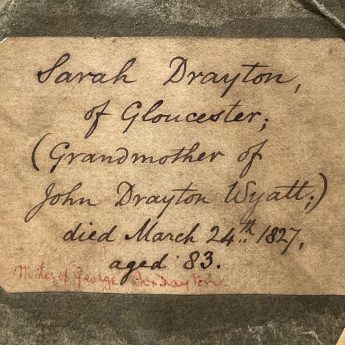 Sarah Drayton,
of Gloucester;
(Grandmother of
John Drayton Wyatt;)
died March 24th 1827,
aged 83.
of George Drayton